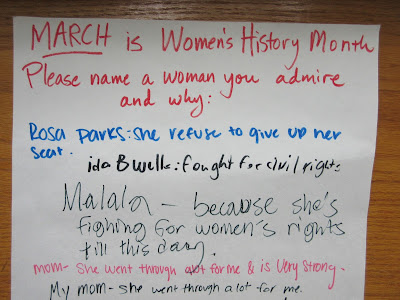 MARCH is Women's History Month
Please name a woman you admire
and why:
Rosa Parks: she refuse to give up her
seat.
ida B wells: fought for civil rights
Malala - because she's
fighting for women's rights
till this day.
mom- she went through alot for me & is very strong.
My mom- she went through a lot for me.